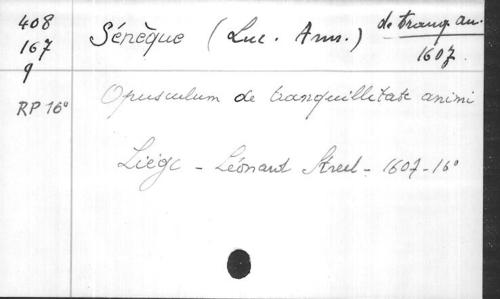 408
167
9
RP 16°
Sénèque (Luc. Ann.) de tranq. an.
1607.
Opusculum de tranquillitate animi
Liége - Léonard Streel - 1607 - 16°